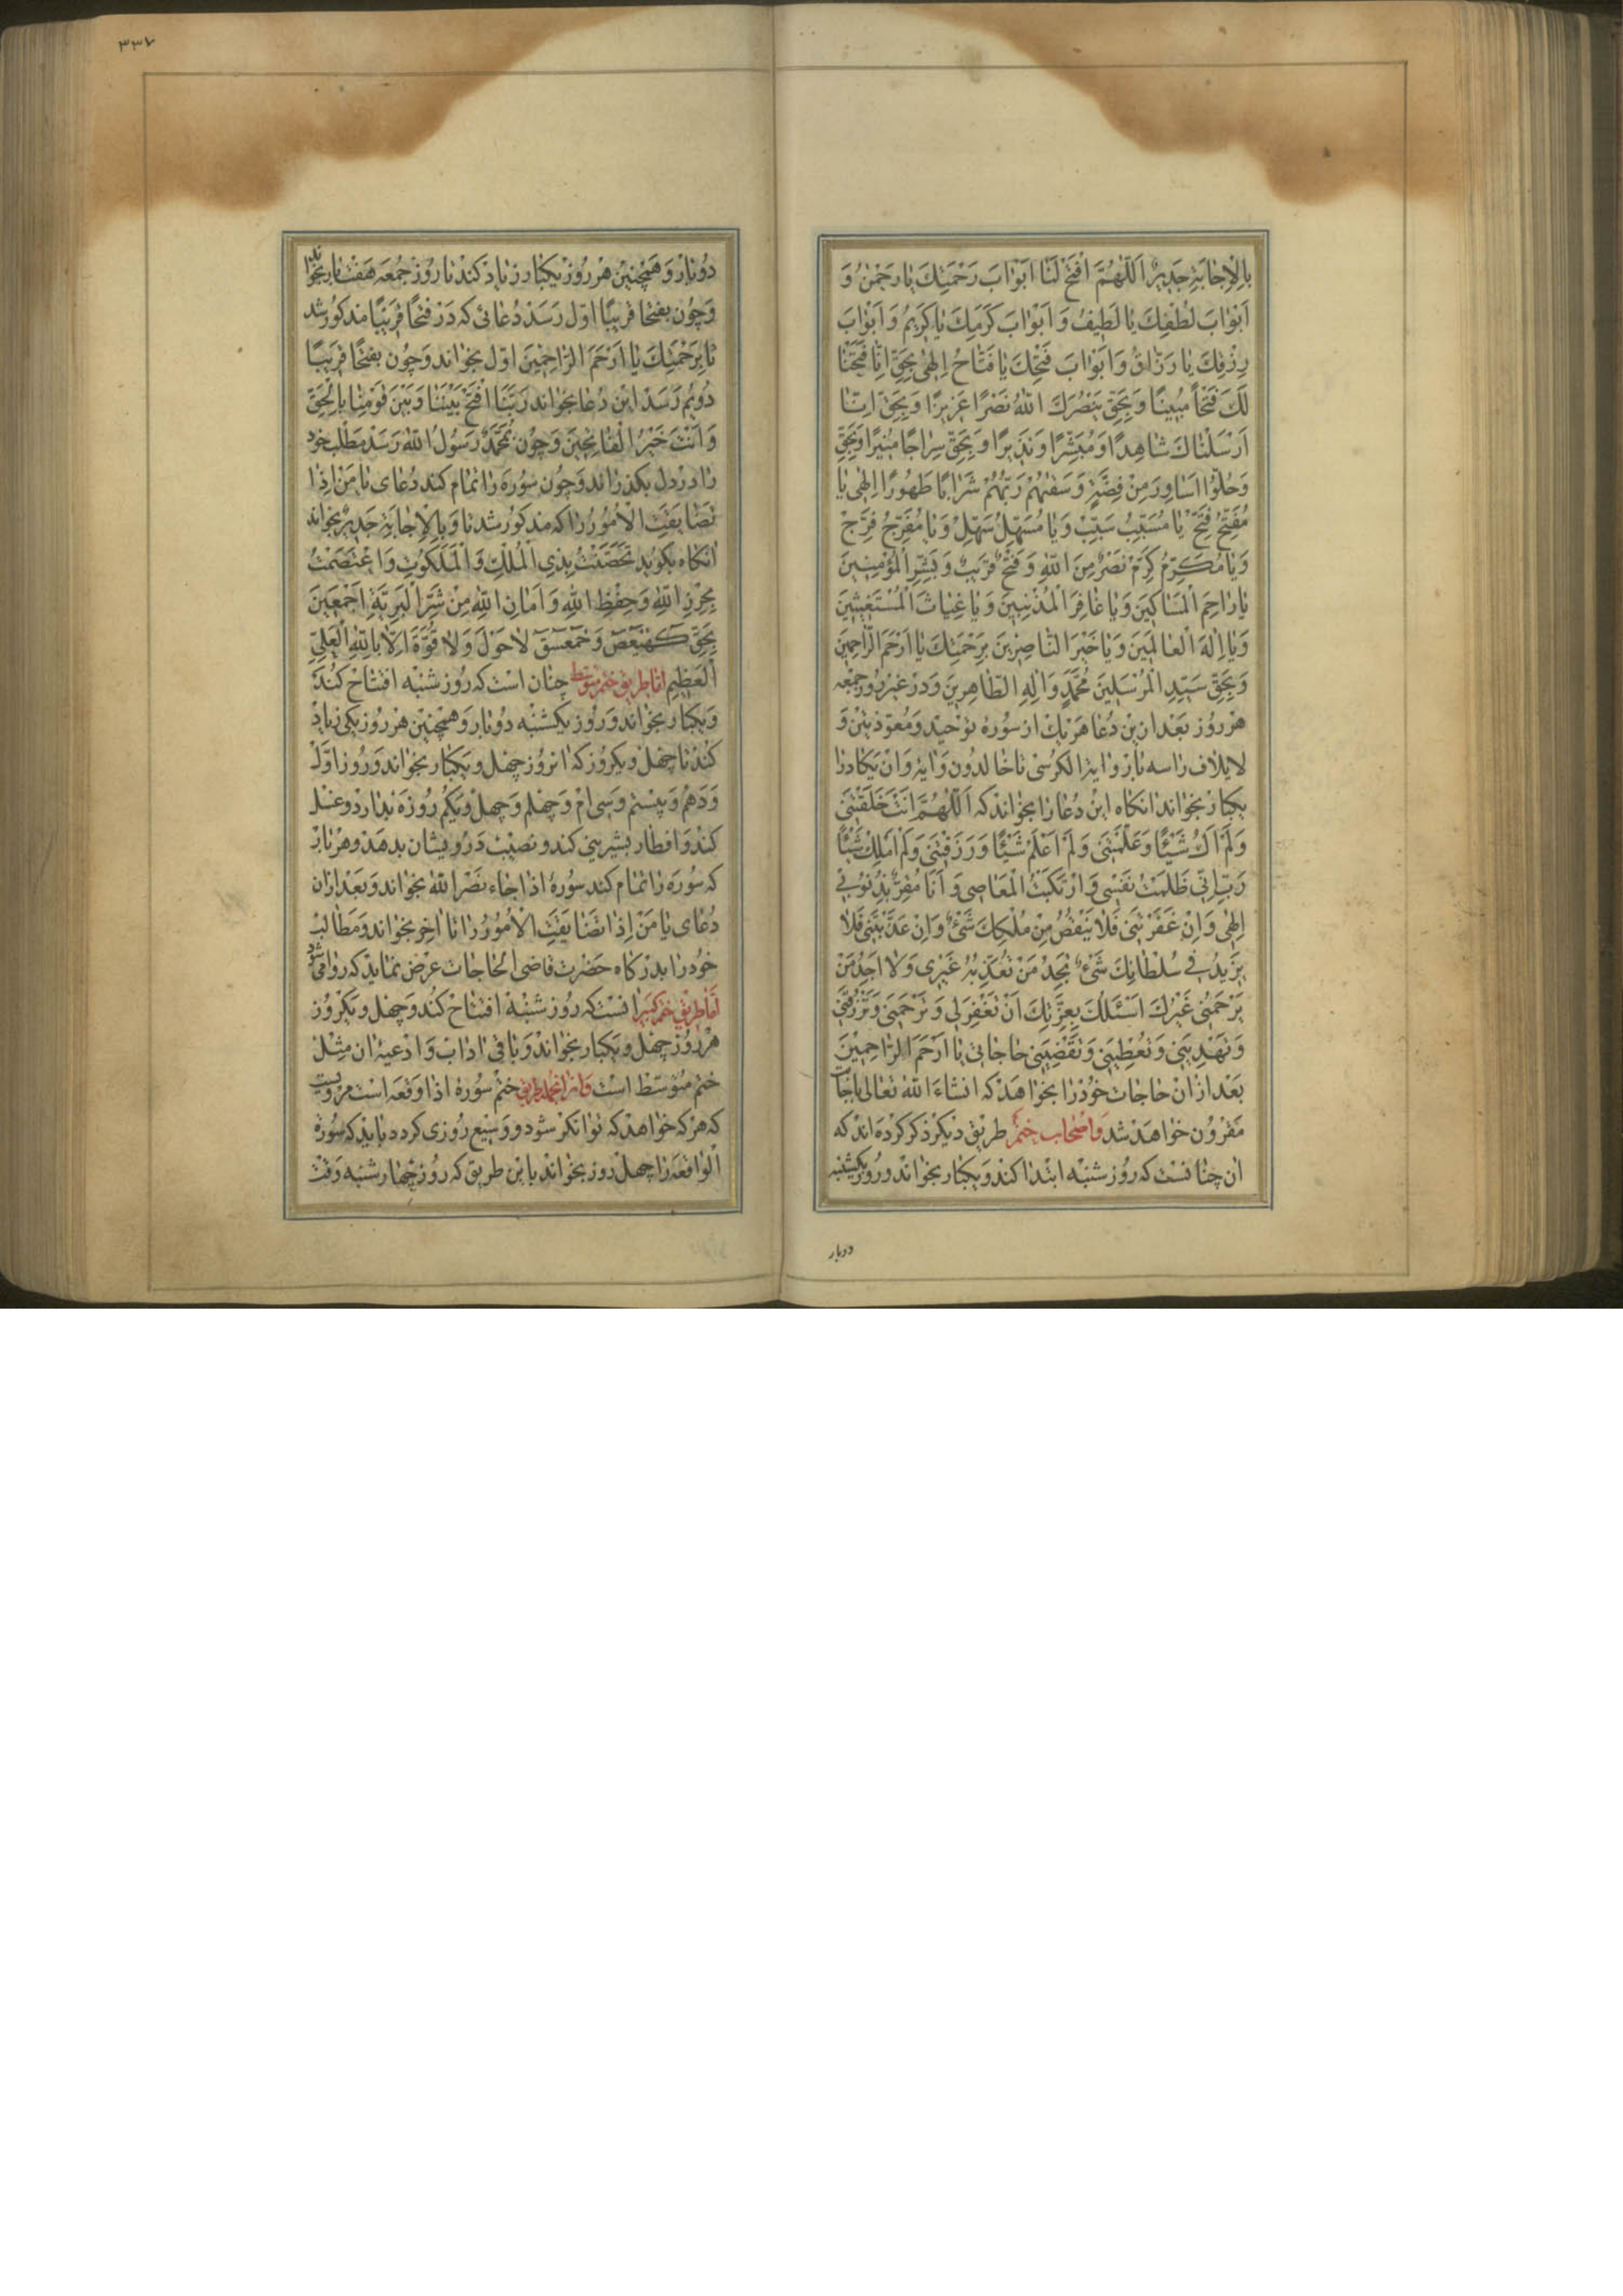 بِالْاِجٰابَةِ جَدٖيرٌ اَللّٰهُمَّ افْتَحْ لَنٰا اَبْوٰابَ رَحْمَتِكَ يٰا رَحْمٰنُ وَ
اَبْوٰابَ لُطْفِكَ يٰا لَطٖيفُ وَ اَبْوٰابَ كَرَمِكَ يٰا كَرٖيمُ وَ اَبْوٰابَ
رِزْقِكَ يٰا رَزّٰاقُ وَ اَبْوٰابَ فَتْحِكَ يٰا فَتّٰاحُ اِلٰهٖى بِحَقِّ اِنّٰا فَتَحْنٰا
لَكَ فَتْحاً مُبٖينًا وَ بِحَقِّ يَنْصُرَكَ اللّٰهُ نَصْرًا عَزٖيزًا وَ بِحَقِّ اِنّٰا
اَرْسَلْنٰاكَ شٰاهِدًا وَ مُبَشِّرًا وَ نَذٖيرًا وَ بِحَقِّ سِرٰاجًا مُنٖيرًا وَ بِحَقِّ
وَ حُلُّوٓا اَسٰاوِرَ مِنْ فِضَّةٍ وَ سَقٰيهُمْ رَبُّهُمْ شَرٰابًا طَهُورًا اِلٰهٖى يٰا
مُفَتِّحُ فَتِّحْ يٰا مُسَبِّبُ سَبِّبْ وَ يٰا مُسَهِّلُ سَهِّلْ وَ يٰا مُفَرِّجُ فَرِّجْ
وَ يٰا مُكَرِّمُ كَرِّمْ نَصْرٌ مِنَ اللّٰهِ وَ فَتْحٌ قَرٖيبٌ وَ بَشِّرِ الْمُؤْمِنٖينَ
يٰا رٰاحِمَ الْمَسٰاكٖينَ وَ يٰا غٰافِرَ الْمُذْنِبٖينَ وَ يٰا غِيٰاثَ الْمُسْتَغٖيثٖينَ
وَ يٰا اِلٰهَ الْعٰالَمٖينَ وَ يٰا خَيْرَ النّٰاصِرٖينَ بِرَحْمَتِكَ يٰا اَرْحَمَ الرّٰاحِمٖينَ
وَ بِحَقِّ سَيِّدِ الْمُرْسَلٖينَ مُحَمَّدٍ وَ اٰلِهِ الطّٰاهِرٖينَ وَ در غير روز جمعه
هر روز بعد از اين دعا هر يك از سورهٔ توحيد و معوّذتين و
لايلاف را سه بار و اية الكرسى تا خالدون و اية و ان يكاد را
يكبار بخواند انكاه اين دعا را بخواند كه اَللّٰهُمَّ اَنْتَ خَلَقْتَنٖى
وَ لَمْ اَكُ شَيْئًا وَ عَلَّمْتَنٖى وَ لَمْ اَعْلَمْ شَيْئًا وَ رَزَقْتَنٖى وَ لَمْ اَمْلِكْ شَيْئًا
رَبِّ اِنّٖى ظَلَمْتُ نَفْسٖى وَ ارْتَكَبْتُ الْمَعٰاصٖى وَ اَنَا مُقِرٌّ بِذُنُوبٖى
اِلٰهٖى وَ اِنْ غَفَرْتَنٖى فَلٰا يَنْقُصُ مِنْ مُلْكِكَ شَىْءٌ وَ اِنْ عَذَّبْتَنٖى فَلٰا
يَزٖيدُ فٖى سُلْطٰانِكَ شَىْءٌ تَجِدُ مَنْ تُعَذِّبُهُ غَيْرٖى وَ لٰا اَجِدُ مَنْ
يَرْحَمُنٖى غَيْرَكَ اَسْئَلُكَ بِعِزَّتِكَ اَنْ تَغْفِرَ لٖى وَ تَرْحَمَنٖى وَ تَرْزُقَنٖى
وَ تَهْدِيَنٖى وَ تُعْطِيَنٖى وَ تَقْضِيَنٖى حٰاجٰاتٖى يٰا اَرْحَمَ الرّٰاحِمٖينَ
بعد از ان حاجات خود را بخواهد كه انشاء اللّٰه تعالى باجابت
مقرون خواهد شد و اصحاب ختم طريق ديكر ذكر كرده اند كه
ان چنانست كه روز شنبه ابتدا كند و يكبار بخواند و روز يكشنبه
دوبار
٣٣٧
دو بار و همچنين هر روز يكبار زياد كند تا روز جمعه هفت بار بخواند
و چون بفتحا قريبًا اول رسد دعائى كه در فتحًا قريبًا مذكور شد
تا بِرَحْمَتِكَ يٰا اَرْحَمَ الرّٰاحِمٖينَ اول بخواند و چون بفتحًا قريبًا
دويم رسد اين دعا بخواند رَبَّنَا افْتَحْ بَيْنَنٰا وَ بَيْنَ قَوْمِنٰا بِالْحَقِّ
وَ اَنْتَ خَيْرُ الْفٰاتِحٖينَ و چون بمُحَمَّدٌ رَسُولُ اللّٰه رسد مطلب خود
را در دل بكذراند و چون سوره را تمام كند دعاى يٰا مَنْ اِذٰا
تَضٰايَقَتِ الْاُمُورُ را كه مذكور شد تا وَ بِالْاِجٰابَةِ جَدٖيرٌ بخواند
انكاه بكويد تَحَصَّنْتُ بِذِى الْمُلْكِ وَ الْمَلَكُوتِ وَ اعْتَصَمْتُ
بِحِرْزِ اللّٰهِ وَ حِفْظِ اللّٰهِ وَ اَمٰانِ اللّٰهِ مِنْ شَرِّ الْبَرِيَّةِ اَجْمَعٖينَ
بِحَقِّ كٓهٰيٰعٓصٓ وَ حٰمٓعٓسٓقٓ لٰا حَوْلَ وَ لٰا قُوَّةَ اِلّٰا بِاللّٰهِ الْعَلِىِّ
الْعَظٖيمِ امّا طريق ختم متوسط چنان است كه روز شنبه افتتاح كند
و يكبار بخواند و روز يكشنبه دو بار و همچنين هر روز يكى زياد
كند تا چهل و يكروز كه انروز چهل و يكبار بخواند و روز اوّل
و دهم و بيستم و سى ام و چهلم و چهل و يكم روزه بدارد و غسل
كند و افطار بشيرينى كند و نصيب درويشان بدهد و هر بار
كه سوره را تمام كند سورهٔ اذا جاء نصر اللّٰه بخواند و بعد ازان
دعاى يٰا مَنْ اِذٰا تَضٰايَقَتِ الْاُمُورُ را تا اخر بخواند و مطالب
خود را بدركاه حضرت قاضى الحاجات عرض نمايد كه روا مى شود
امّا طريق ختم كبير انست كه روز شنبه افتتاح كند و چهل و يكروز
هر روز چهل و يكبار بخواند و باقى اداب و ادعيه ان مثل
ختم متوسّط است و از انجمله طريق ختم سورهٔ اذا وقعه است مرويست
كه هر كه خواهد كه توانكر شود و وسيع روزى كردد بايد كه سورهٔ
الواقعه را چهل روز بخواند باين طريق كه روز چهارشنبه وقت